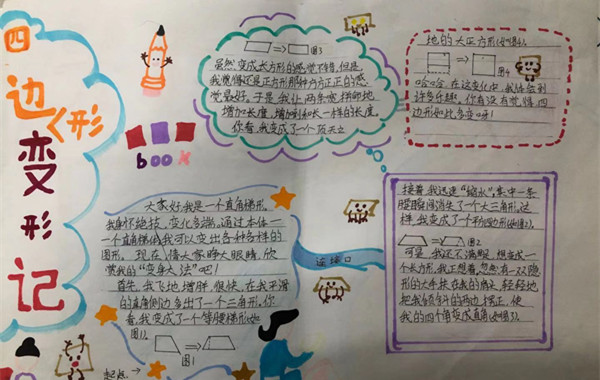 四边形变形记
book
大家好,我是一个直角梯形。
我身怀绝技,变化多端。通过本体——
一个直角梯形,我可以变出各种各样的
图形。现在,请大家睁大眼睛,欣
赏我的“变身大法”吧!
首先,我飞地增胖,很快,在我平滑
的直角侧边多出了一个三角形,你
看,我变成了一个等腰梯形(如
图1)。
图1
起点→
连接口
接着,我迅速“缩水”,其中一条
腰瞬间消失了一个大三角形,这
样,我变成了个平行四边形(如图2)。
图2
可是,我还不满足,想变成一
个长方形,我正想着,忽然有一双隐
形的大手扶在我的肩头,轻轻地
把我倾斜的两边摆正,使
我的四个角变成直角(如图3)。
图3
虽然,变成长方形的感觉不错,但是,
我觉得还是正方形那种方方正正的感
觉最好。于是,我让两条宽拼命地
增加长度,增加到和长一样的长度。
你看,我变成了一个顶天立
地的大正方形(如图4)。
图4
哈哈,在这变化中,我体会到
许多乐趣,你有没有觉得,四
边形如此多变呀!